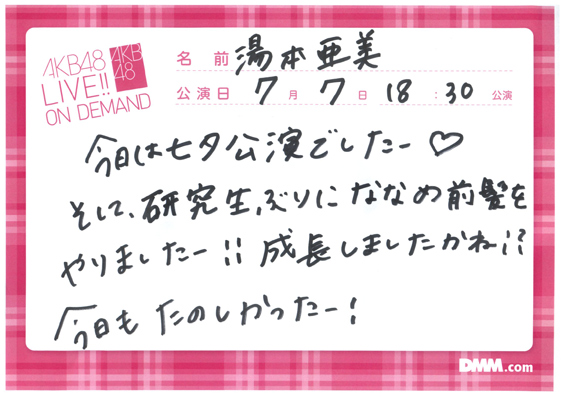 AKB48
LIVE!!
ON DEMAND
AKB
48
名前 湯本亜美
公演日 7月7日 18:30 公演
今日は七夕公演でしたー♡
そして、研究生ぶりにななめ前髪を
やりましたー!! 成長しましたかね!?
今日もたのしかったー!
DMM.com